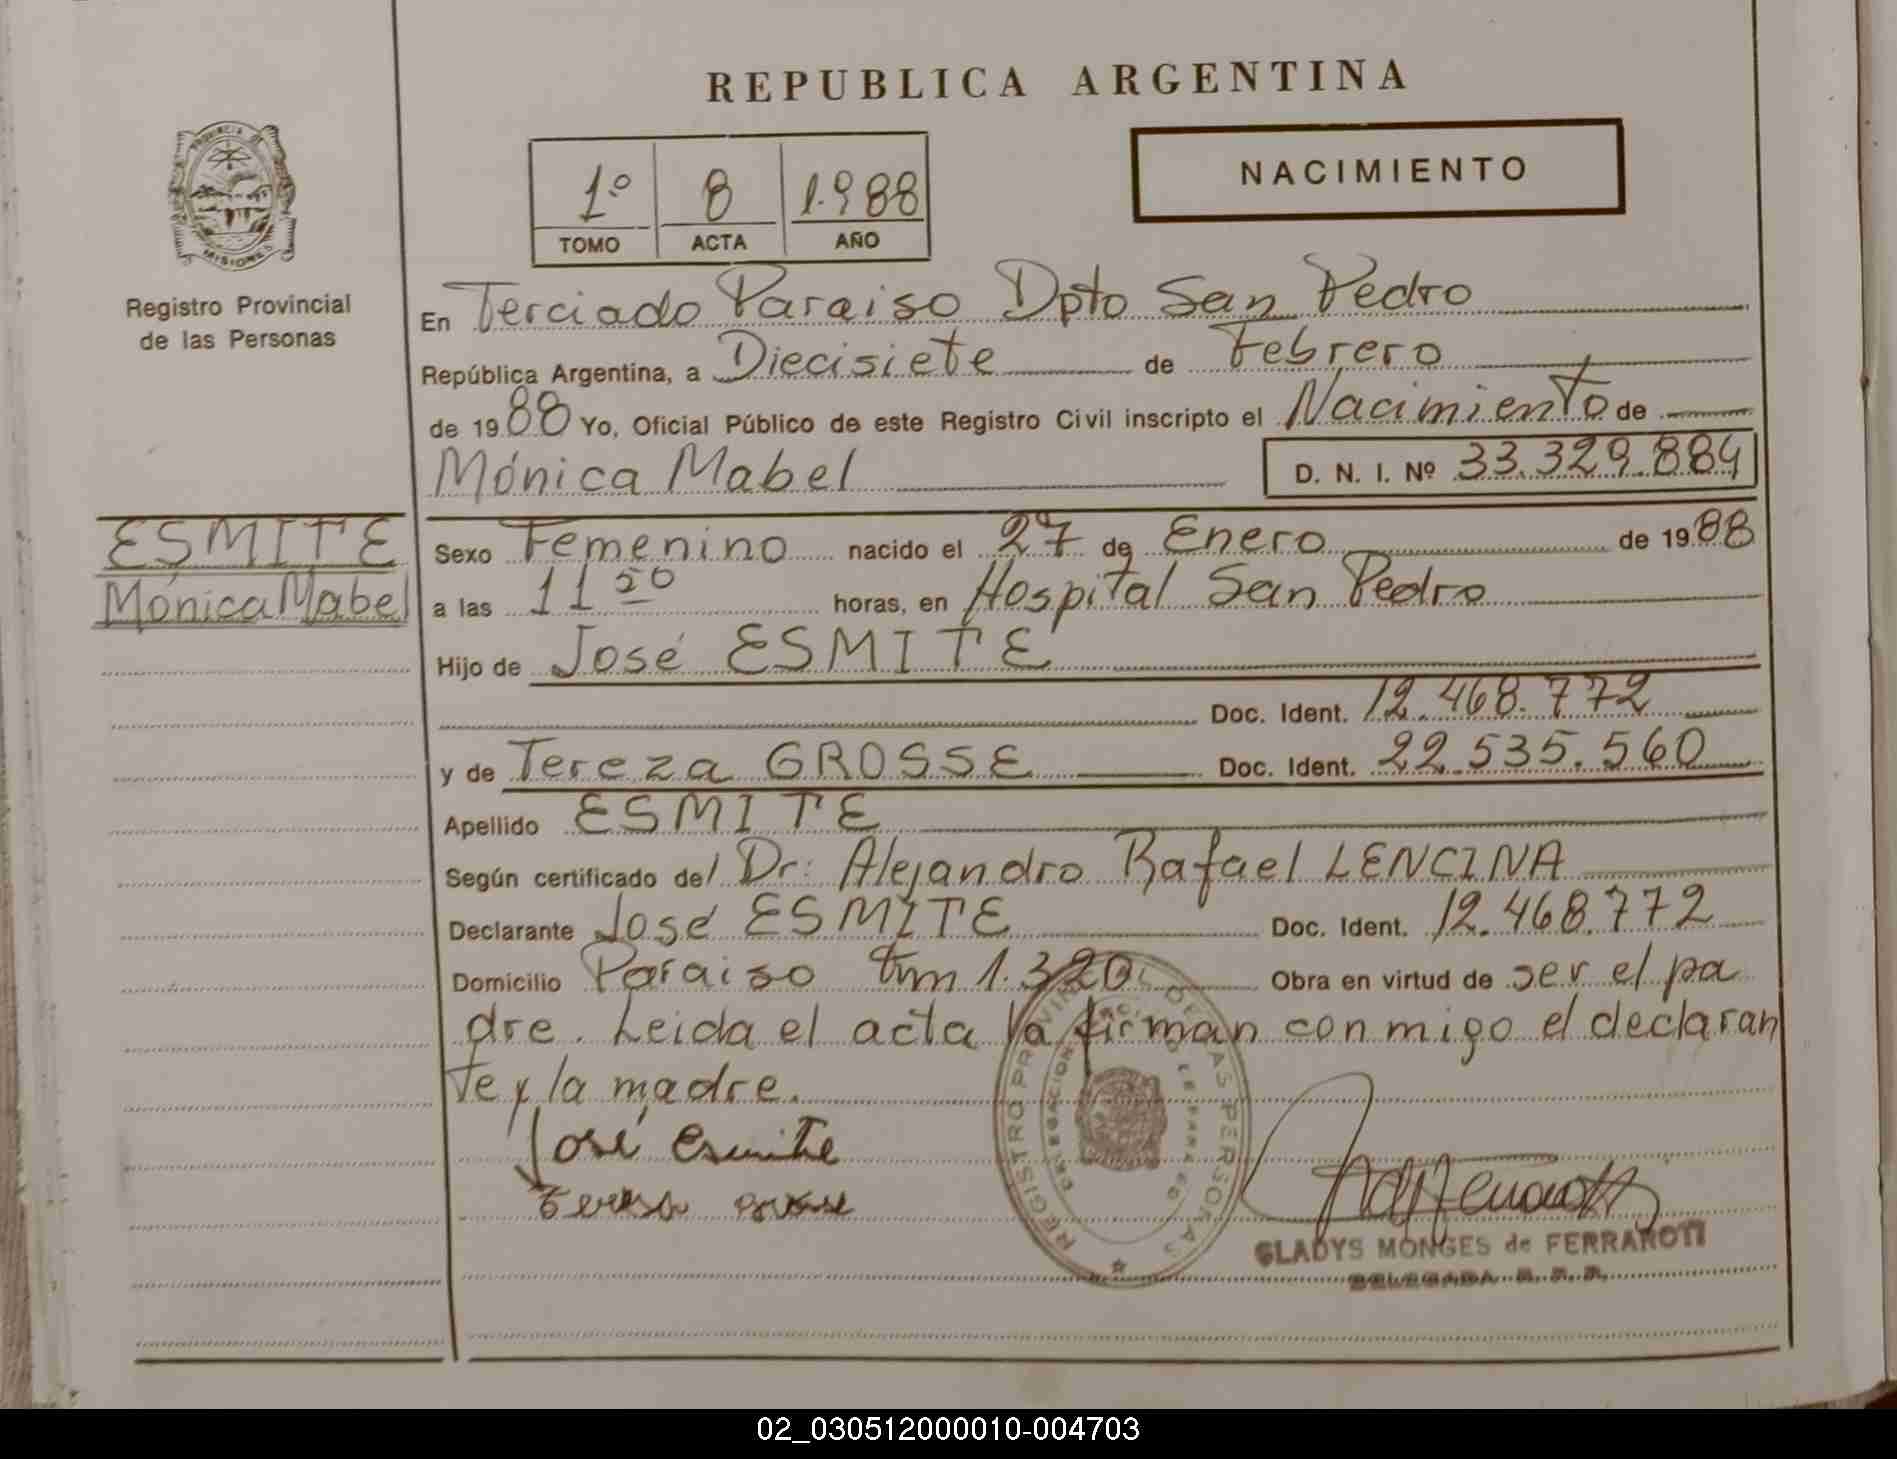 REPUBLICA ARGENTINA
PROVINCIA DE
MISIONES
Registro Provincial
de las Personas
1º 8 1.988
TOMO ACTA AÑO
NACIMIENTO
En Terciado Paraiso Dpto San Pedro
República Argentina, a Diecisiete de Febrero
de 1988 Yo, Oficial Público de este Registro Civil inscripto el Nacimiento de
Mónica Mabel D. N. I. Nº 33.329.884
ESMITE
Mónica Mabel
Sexo Femenino nacido el 27 de Enero de 1988
a las 11 50 horas, en Hospital San Pedro
Hijo de José ESMITE
Doc. Ident. 12.468.772
y de Tereza GROSSE Doc. Ident. 22.535.560
Apellido ESMITE
Según certificado del Dr: Alejandro Rafael LENCINA
Declarante José ESMITE Doc. Ident. 12.468.772
Domicilio Paraiso km 1.320 Obra en virtud de ser el pa
dre. Leida el acta la firman conmigo el declaran
te y la madre.
José Esmite
GLADYS MONGES de FERRAROTI
DELEGADA R. P. P.
REGISTRO PROVINCIAL DE LAS PERSONAS
DELEGACION
02_030512000010-004703